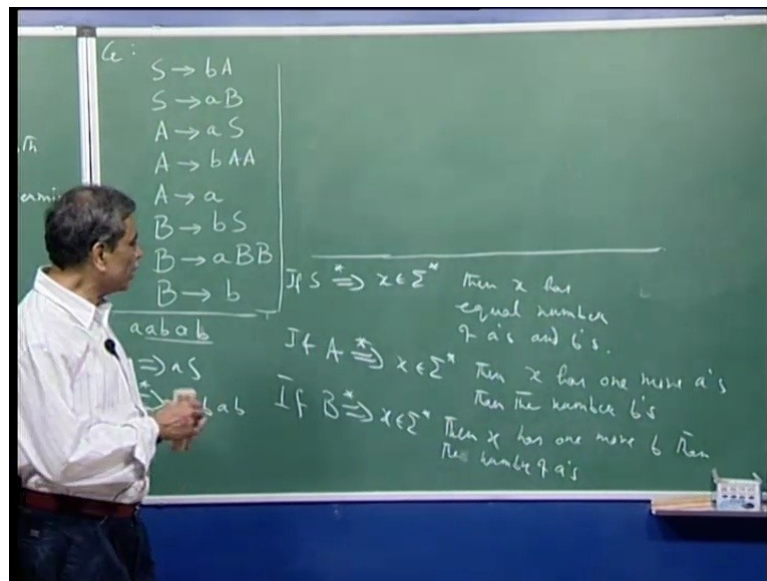 G:
S → bA
S → aB
A → aS
A → bAA
A → a
B → bS
B → aBB
B → b
aabab
⇒ aS
bab
If S *⇒ x ∈ Σ* then x has
equal number
of a's and b's.
If A *⇒ x ∈ Σ* then x has one more a's
than the number b's
If B *⇒ x ∈ Σ* then x has one more b than
the number of a's